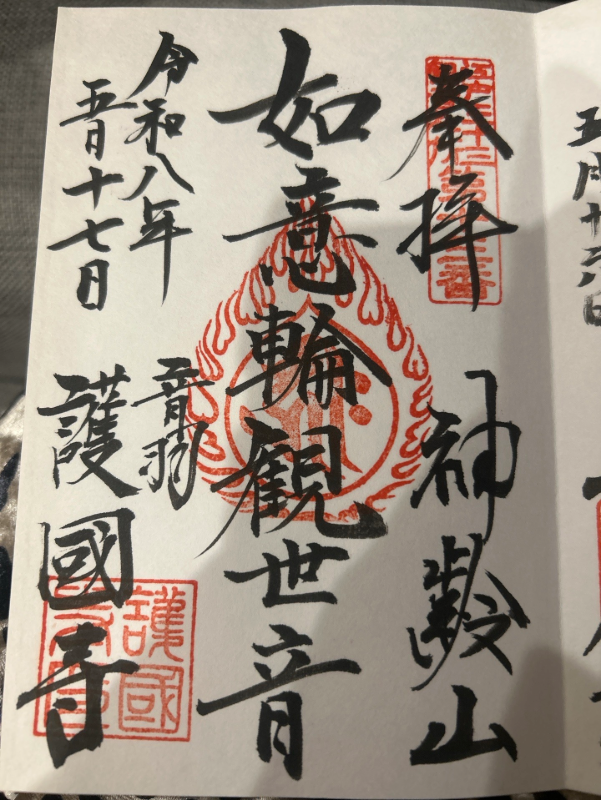 奉拝
神齢山
如意輪観世音
令和八年
五月十七日
音羽
護國寺
護國
五月十六日